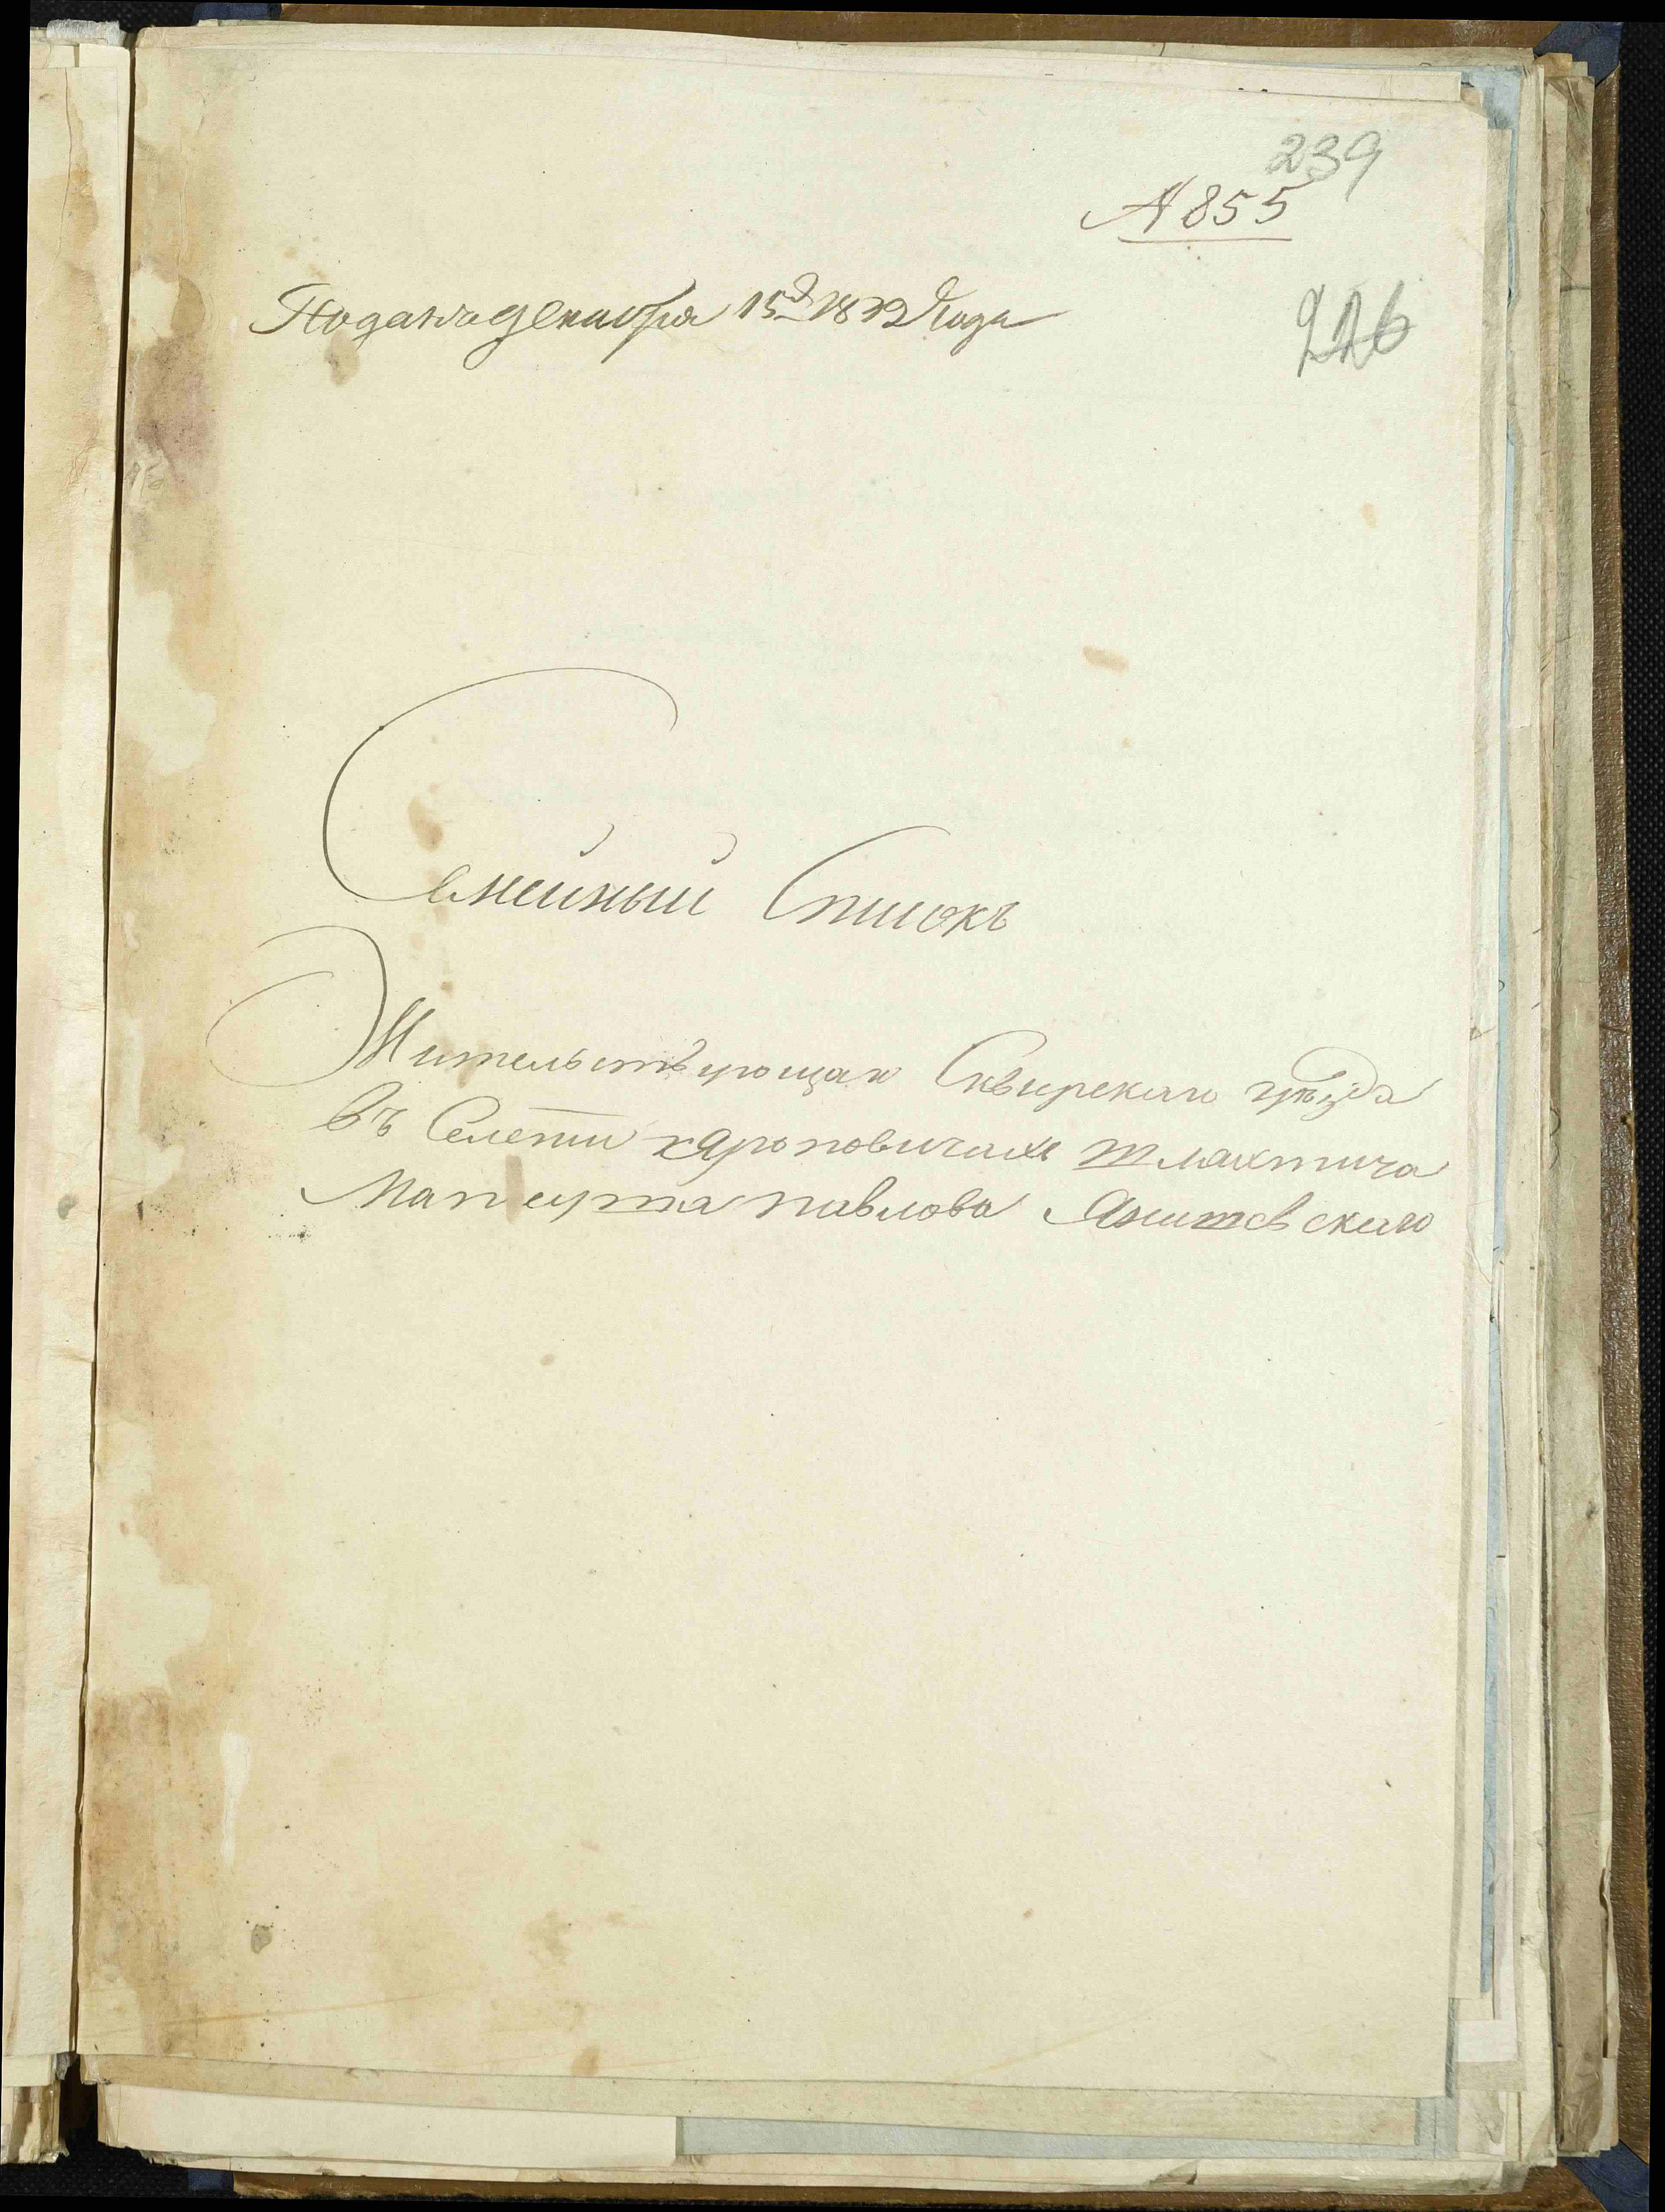 239
№ 855
Подано декабря 15д 1832 года
226
Семейный Списокъ
Жительствующаго Сквирскаго уѣзда
въ Селеніи харповичахъ шляхтича
Матеуша павлова Янишевскаго